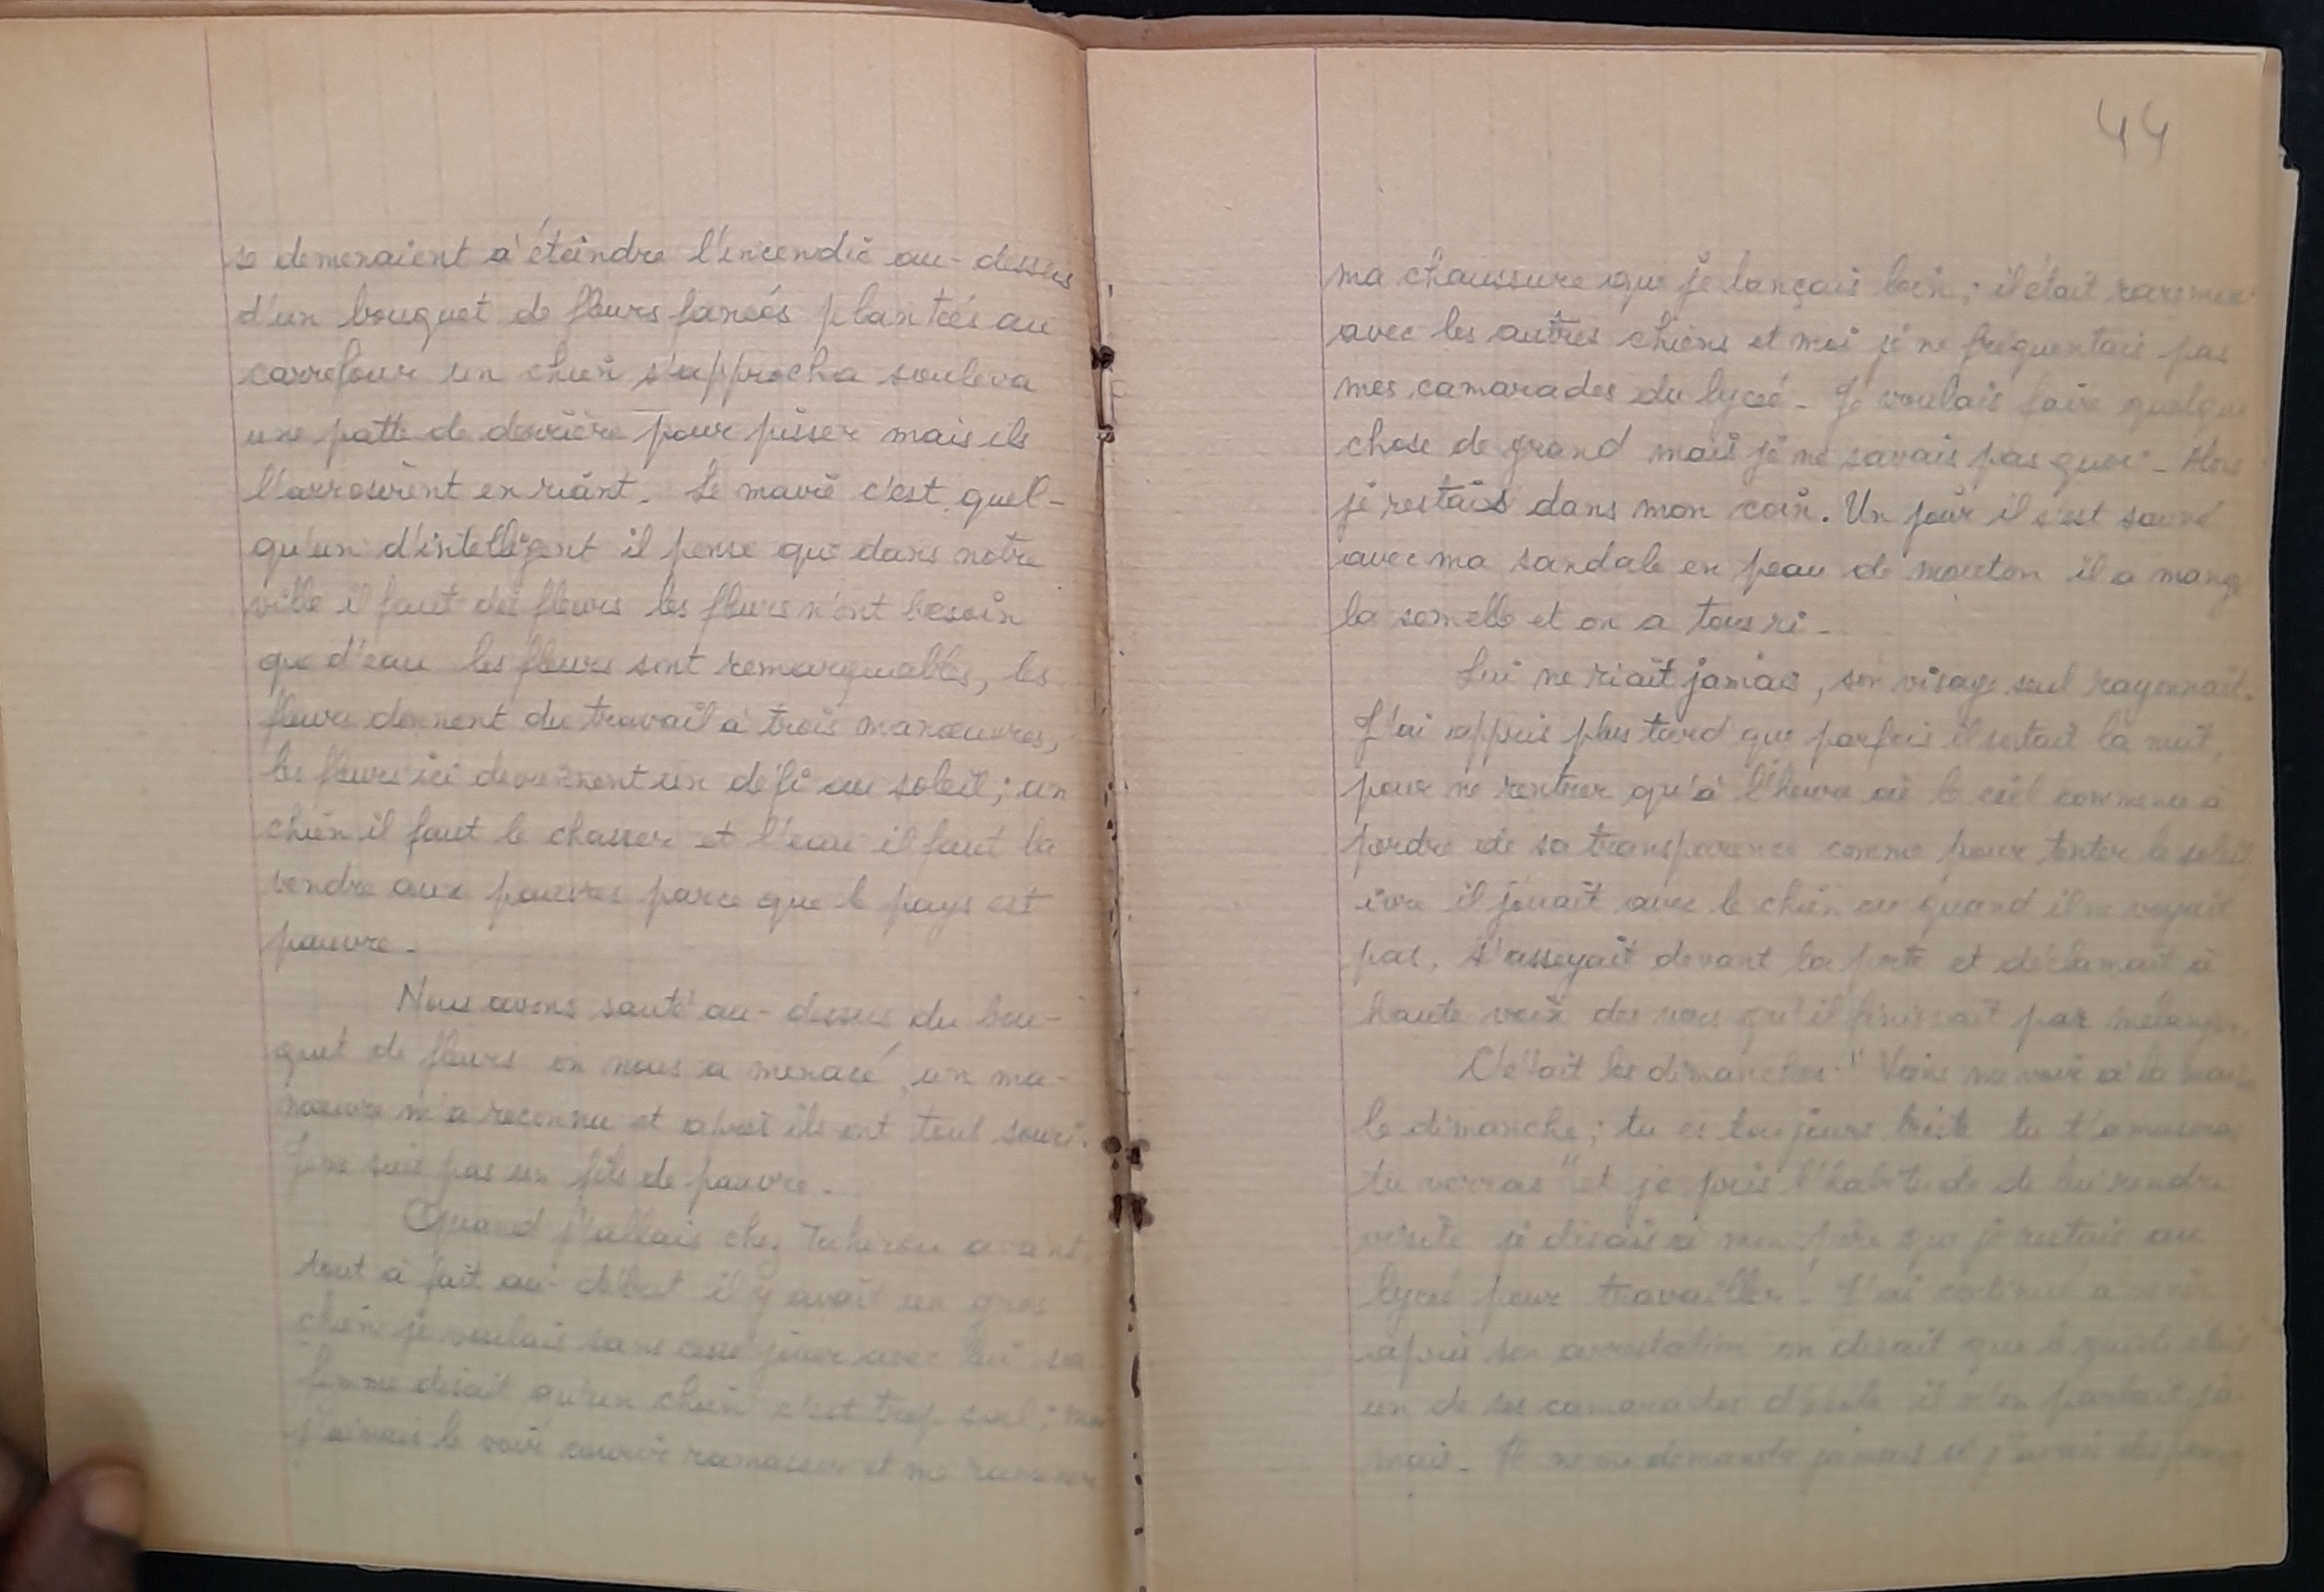 se demenaient à éteindre l'incendie au-dessus
d'un bouquet de fleurs fanées plantées au
carrefour un chien s'approcha souleva
une patte de derrière pour pisser mais ils
l'arrosèrent en riant. Le maire c'est quel-
qu'un d'intelligent il pense que dans notre
ville il faut des fleurs les fleurs n'ont besoin
que d'eau les fleurs sont remarquables, les
fleurs donnent du travail à trois manœuvres,
les fleurs ici deviennent un défi au soleil ; un
chien il faut le chasser et l'eau il faut la
vendre aux pauvres parce que le pays est
pauvre -
Nous avons sauté au-dessus du bou-
quet de fleurs on nous a menacé, un ma-
nœuvre m'a reconnu et après ils ont tous souri.
Je ne suis pas un fils de pauvre.
Quand j'allais chez Tahirou avant,
tout à fait au-début il y avait un gros
chien je voulais sans cesse jouer avec lui sa
femme disait qu'un chien c'est trop seul ; moi
j'aimais le voir courir ramasser et me ramener
44
ma chaussure que je lançais loin ; il était rarement
avec les autres chiens et moi je ne frequentais pas
mes camarades du lycée - Je voulais faire quelque
chose de grand mais je ne savais pas quoi - Alors
je restais dans mon coin. Un jour il s'est sauvé
avec ma sandale en peau de mouton il a mangé
la semelle et on a tous ri -
Lui ne riait jamais, son visage seul rayonnait.
J'ai appris plus tard que parfois il sortait la nuit,
pour ne rentrer qu'à l'heure où le ciel commence à
perdre de sa transparence comme pour tenter le soleil
ivre il jouait avec le chien ou quand il ne voyait
pas, s'asseyait devant la porte et déclamait à
haute voix des vers qu'il finissait par mélanger.
C'était les dimanches - " Viens me voir à la maison
le dimanche ; tu es toujours triste tu t'amuseras
tu verras " et je pris l'habitude de lui rendre
visite je disais à mon père que je restais au
lycée pour travailler - J'ai continué à venir
après son arrestation on disait que le garde était
un de ses camarades d'école il n'en parlait ja-
mais - Il ne me demanda jamais si j'avais